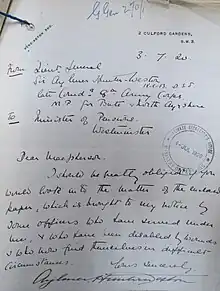 2 CULFORD GARDENS,
S.W.3
3.7.20.
From Lieut General
Sir Aylmer Hunter-Weston
K.C.B. D.S.O
late Comdg 8th Army Corps
M.P for Bute & North Ayrshire
to Minister of Pensions
Westminster
Dear Macpherson
I should be greatly obliged if you
would look into the matter of the enclosed
paper, which is brought to my notice by
some officers who have served under
me, & who have been disabled by wounds
& who now find themselves in difficult
circumstances.
Yours sincerely
Aylmer Hunter-Weston